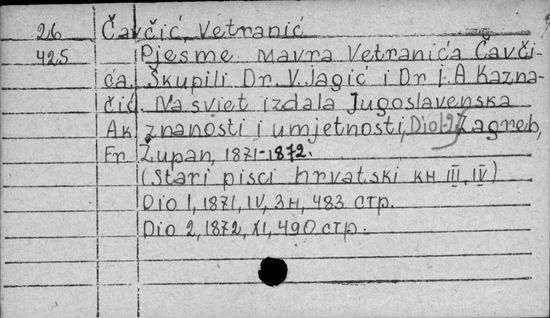 26 Čavčić, Vetranić
425 Pjesme Mavra Vetranića Čavči-
ća. Skupili Dr. V. Jagić i Dr J. A. Kazna-
čić. Na sviet izdala Jugoslavenska
Ak znanosti i umjetnosti, Dio 1-2, Zagreb,
Fr. Župan, 1871-1872.
(Stari pisci hrvatski кн III, IV)
Dio 1, 1871, IV, 3н, 483 стр.
Dio 2, 1872, XI, 490 стр.